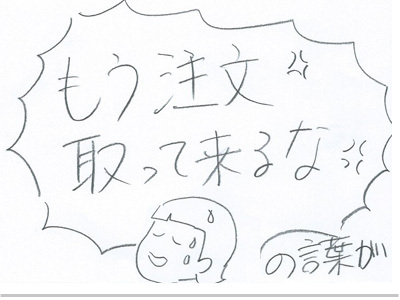 もう注文
取って来るな
の言葉が